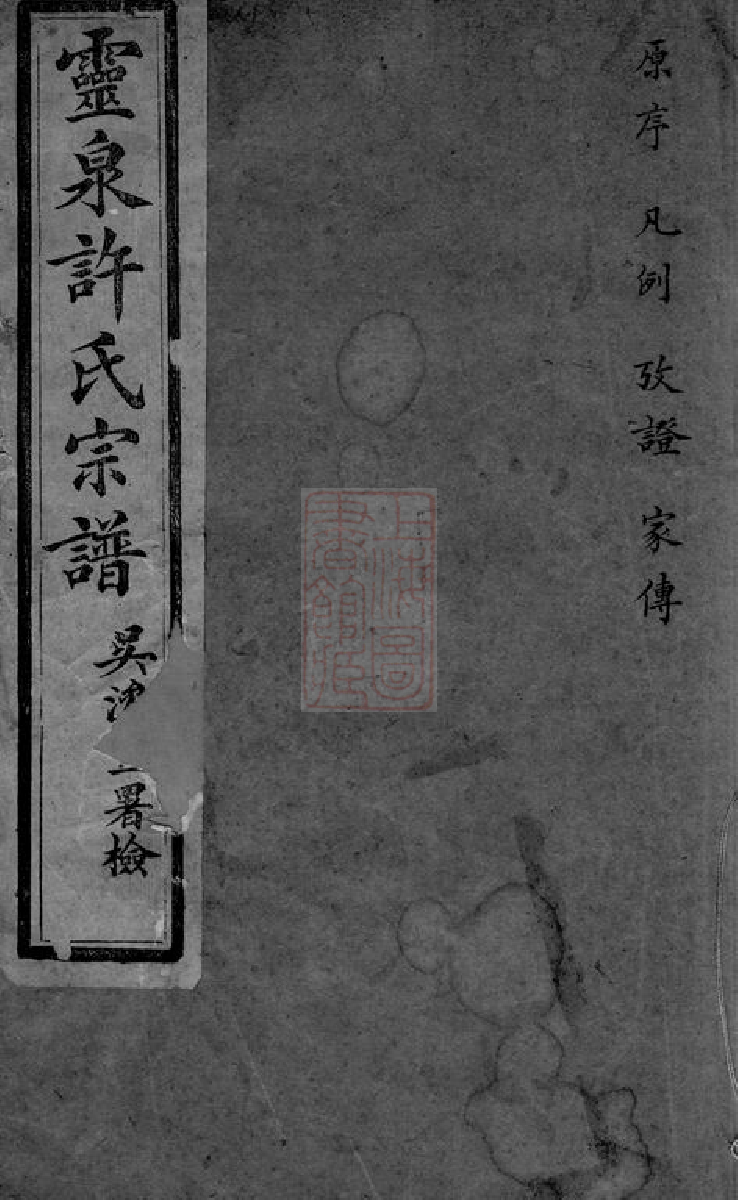 原序 凡例 攷證 家傳
靈泉許氏宗譜
吳 署檢
上海圖書館藏